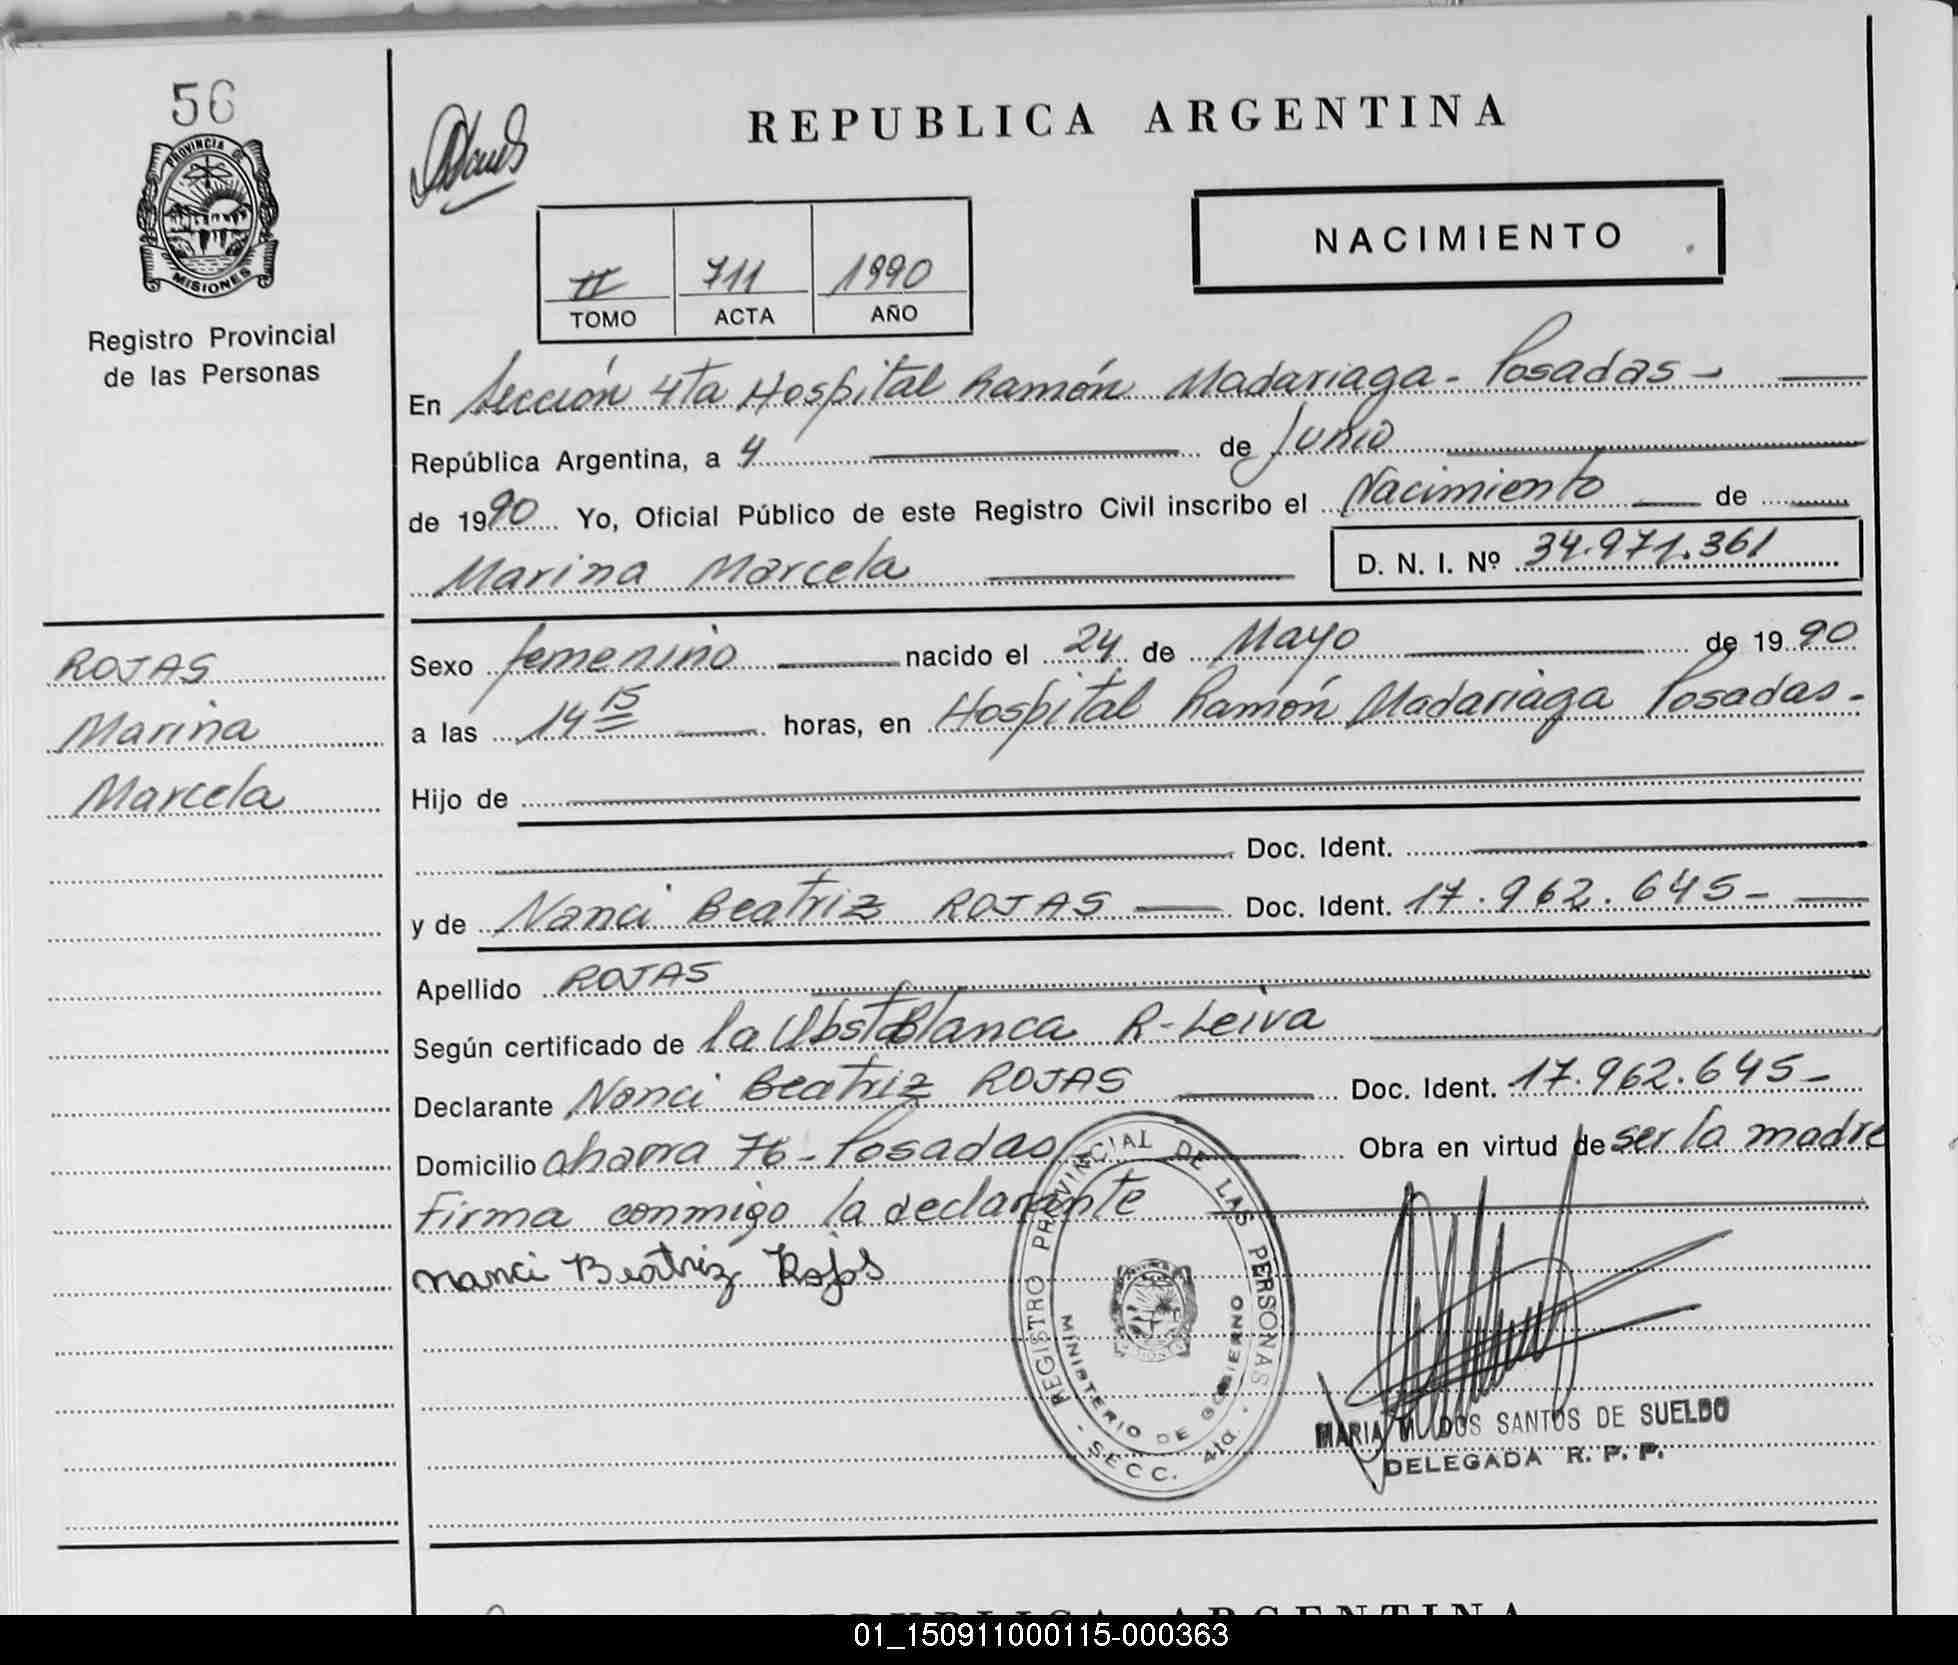 56
PROVINCIA DE
MISIONES
Registro Provincial
de las Personas
REPUBLICA ARGENTINA
NACIMIENTO
II 711 1990
TOMO ACTA AÑO
En Sección 4ta Hospital Ramón Madariaga - Posadas -
República Argentina, a 4 de Junio
de 1990 Yo, Oficial Público de este Registro Civil inscribo el Nacimiento de
Marina Marcela D. N. I. Nº 34.971.361
ROJAS
Marina
Marcela
Sexo femenino nacido el 24 de Mayo de 1990
a las 14 15 horas, en Hospital Ramón Madariaga Posadas -
Hijo de
Doc. Ident.
y de Nanci Beatriz ROJAS Doc. Ident. 17.962.645-
Apellido ROJAS
Según certificado de la Obsta Blanca R. Leiva
Declarante Nanci Beatriz ROJAS Doc. Ident. 17.962.645-
Domicilio chacra 76 - Posadas Obra en virtud de ser la madre
Firma conmigo la declarante
Nanci Beatriz Rojas
REGISTRO PROVINCIAL DE LAS PERSONAS
MINISTERIO DE GOBIERNO
- SECC. 4ta. -
MARIA M. DOS SANTOS DE SUELDO
DELEGADA R. P. P.
REPUBLICA ARGENTINA
01_150911000115-000363